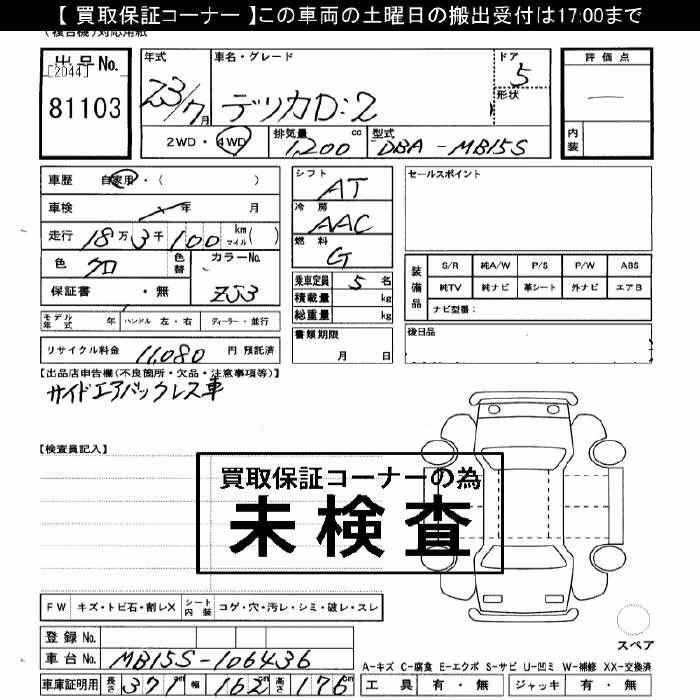 【 買取保証コーナー 】この車両の土曜日の搬出受付は17:00まで
出品No.
[2044]
81103
年式
23/7月
車名・グレード
デリカD:2
ドア
5
形状
評価点
内装
2WD・4WD
排気量
1,200 cc
型式
DBA-MB15S
車歴 自家用・( )
車検 年 月
走行 18万3千100 km マイル( )
色 クロ
色替
カラーNo.
ZJ3
保証書 ・無
シフト
AT
冷房
AAC
燃料
G
乗車定員 5 名
積載量 kg
総重量 kg
書類期限
月 日
セールスポイント
装備品
S/R 純A/W P/S P/W ABS
純TV 純ナビ 革シート 外ナビ エアB
ナビ型番:
後日品
モデル年式 年 ハンドル 左・右 ディーラー・並行
リサイクル料金 11,080 円 預託済
【出品店申告欄(不良箇所・欠品・注意事項等)】
サイドエアバックレス車
【検査員記入】
買取保証コーナーの為
未検査
FW キズ・トビ石・割レX シート内装 コゲ・穴・汚レ・シミ・破レ・スレ
登録No.
車台No. MB15S-106436
車庫証明用 長さ 371cm 幅 162cm 高さ 176cm
スペア
A-キズ C-腐食 E-エクボ S-サビ U-凹ミ W-補修 XX-交換済
工具 有・無 ジャッキ 有・無